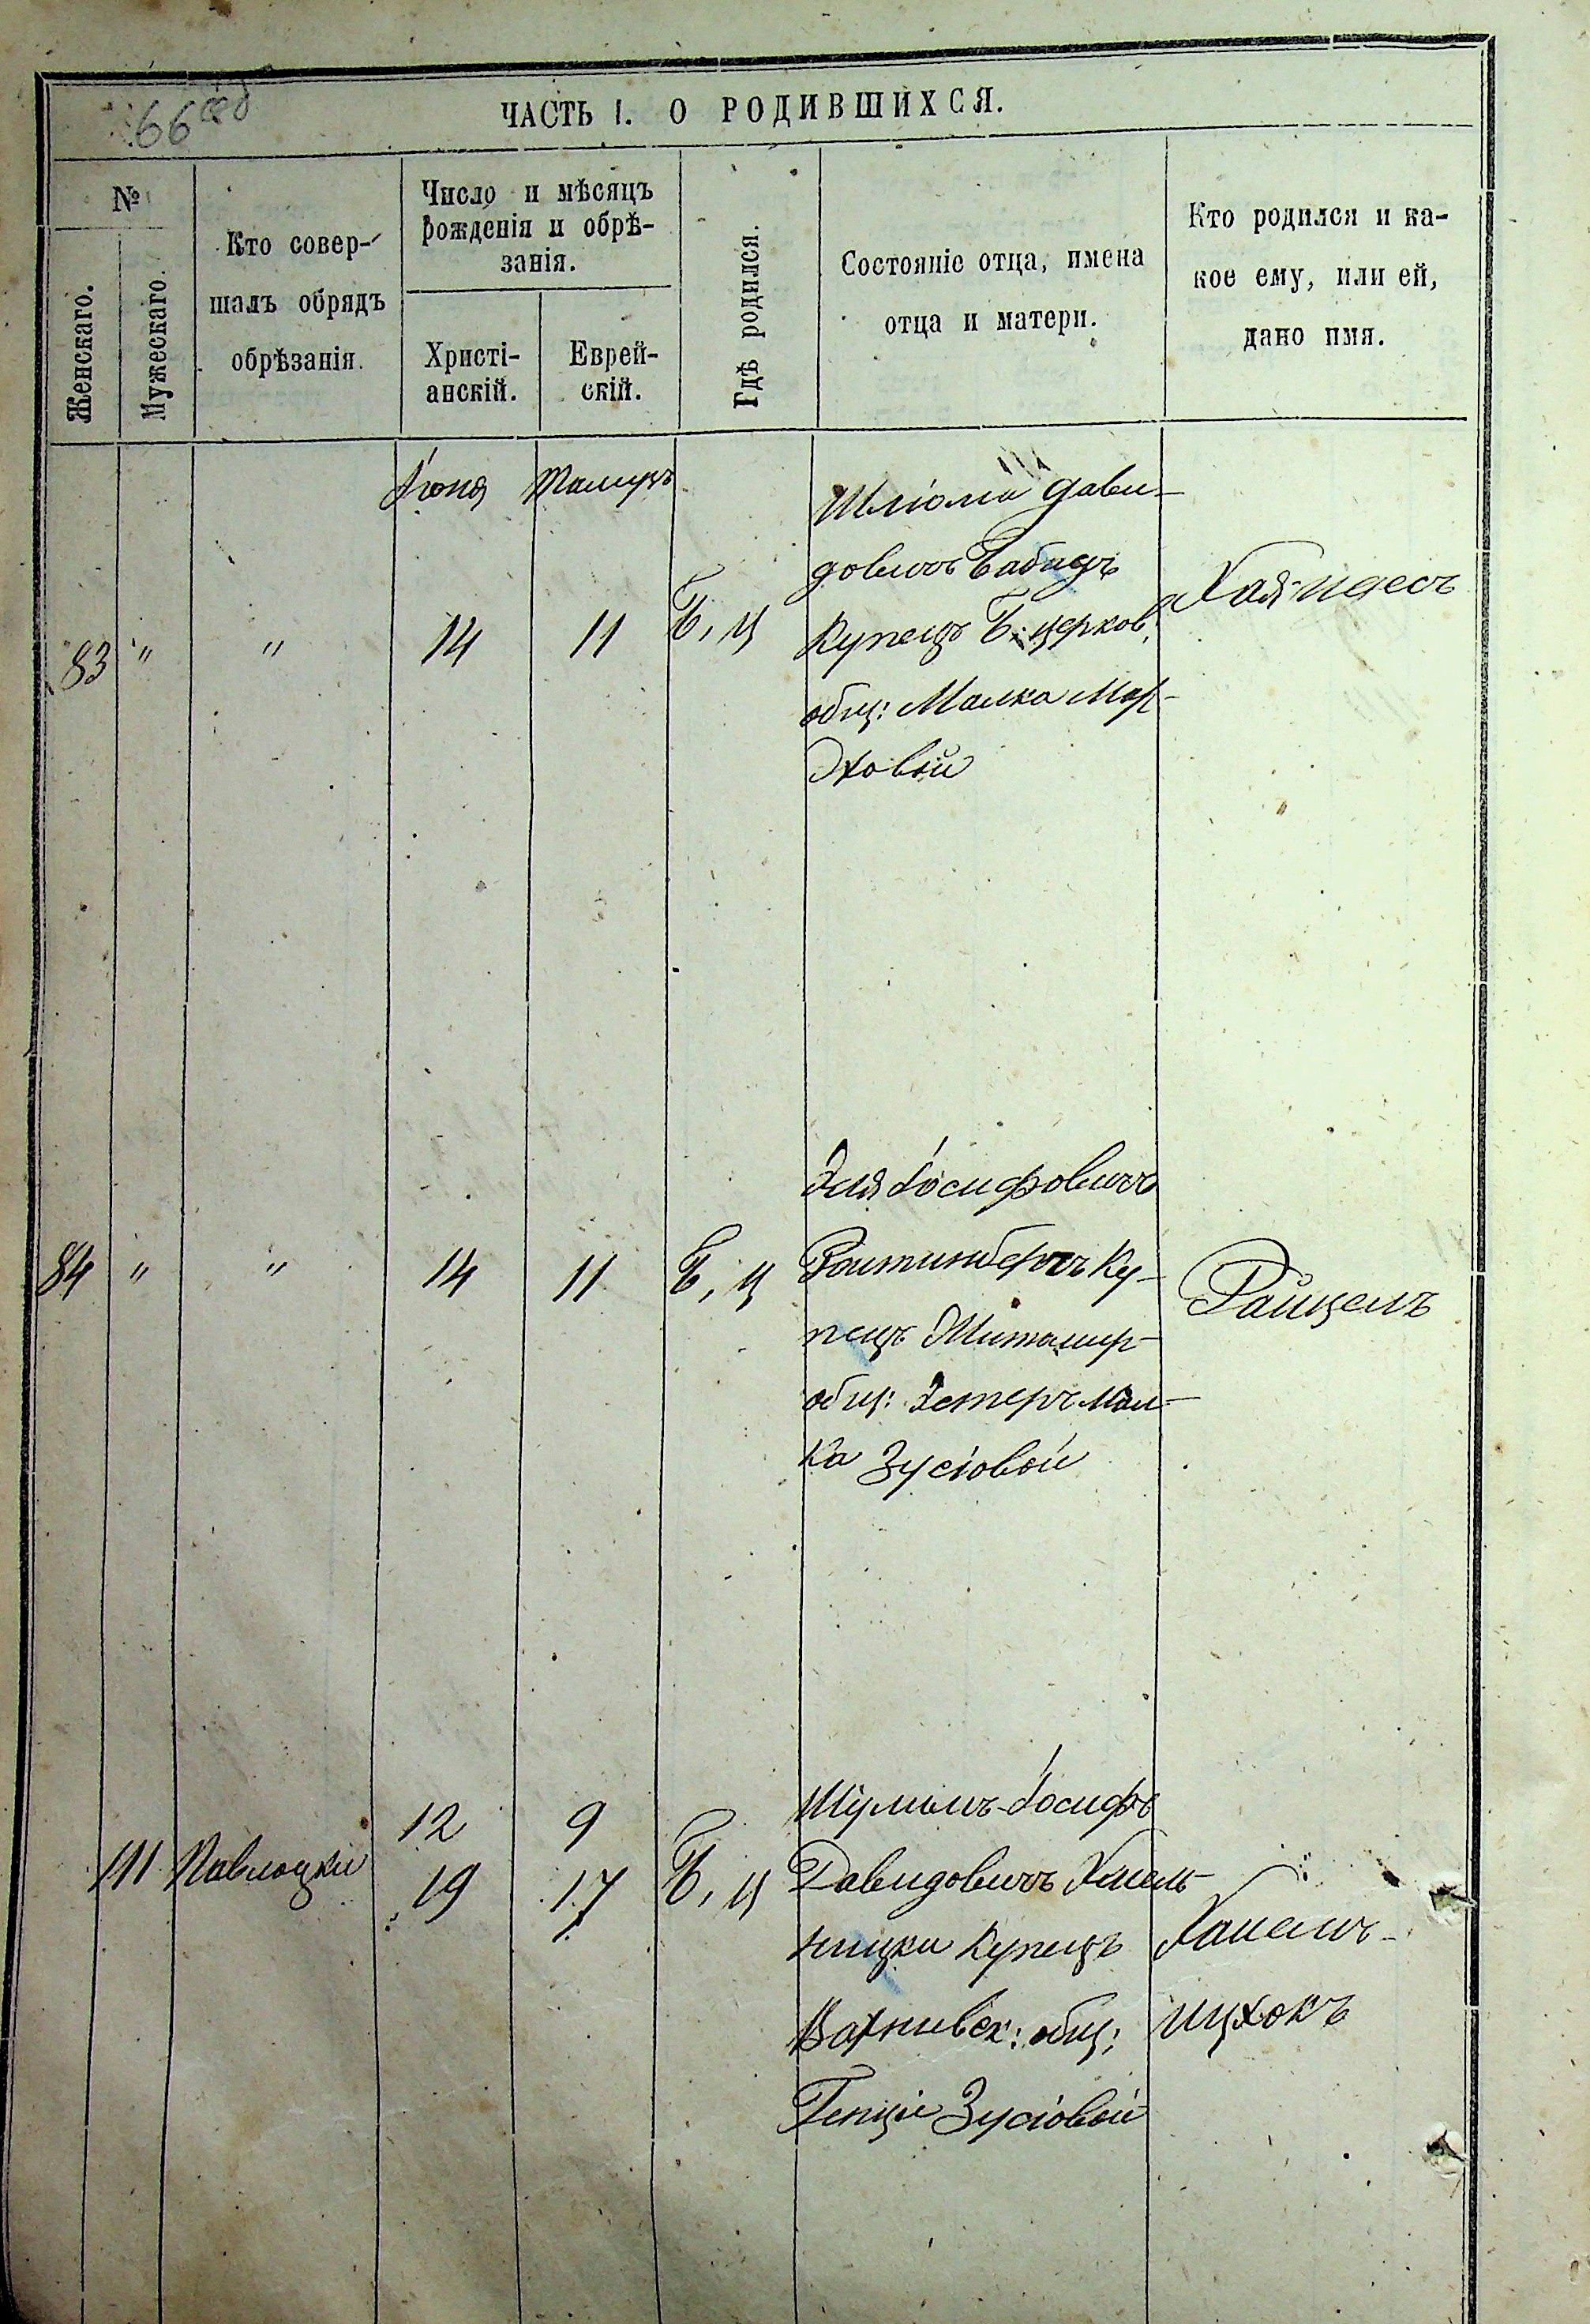 66 об
ЧАСТЬ I. О РОДИВШИХСЯ.
№
Женскаго.
Мужескаго.
Кто совер-
шалъ обрядъ
обрѣзанія.
Число и мѣсяцъ
рожденія и обрѣ-
занія.
Христі-
анскій.
Еврей-
скій.
Гдѣ родился.
Состояніе отца, имена
отца и матери.
Кто родился и ка-
кое ему, или ей,
дано имя.
Іюня Тамузъ
83 " " 14 11 Б, Ц
Шліома Дави-
довичъ
Купецъ Б: церков:
общ: Малка Мор-
дховой
Хая-Идесъ
84 " " 14 11 Б, Ц
Эля Іосифовичъ
Ку-
пецъ Житомир-
общ: Эстеръ Мал-
ка Зусіовой
Райцелъ
111 Павлоцки 12 9 Б, Ц
19 17
Шулимъ-Іосифъ
Давидовичъ Хмель-
ницки Купецъ
общ:
Зусіовой
Ханелъ-
Ицхокъ